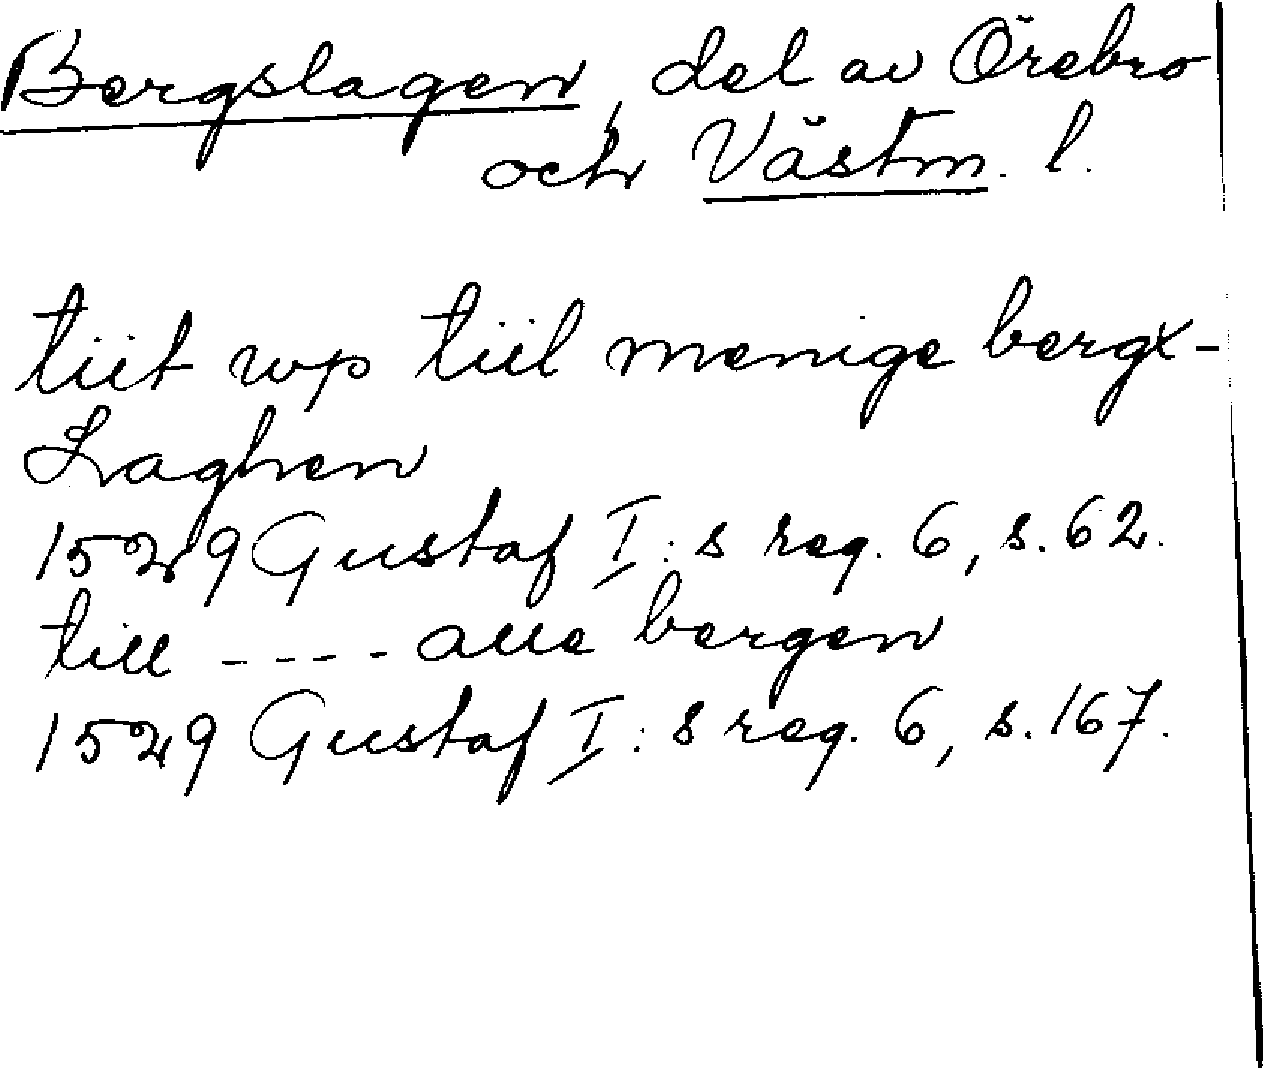 Bergslagen, del av Örebro
och Västm. l.
tiit wp tiil menige bergx-
Laghen
1529 Gustaf I:s reg. 6, s. 62.
till ---- alle bergen
1529 Gustaf I:s reg. 6, s. 167.